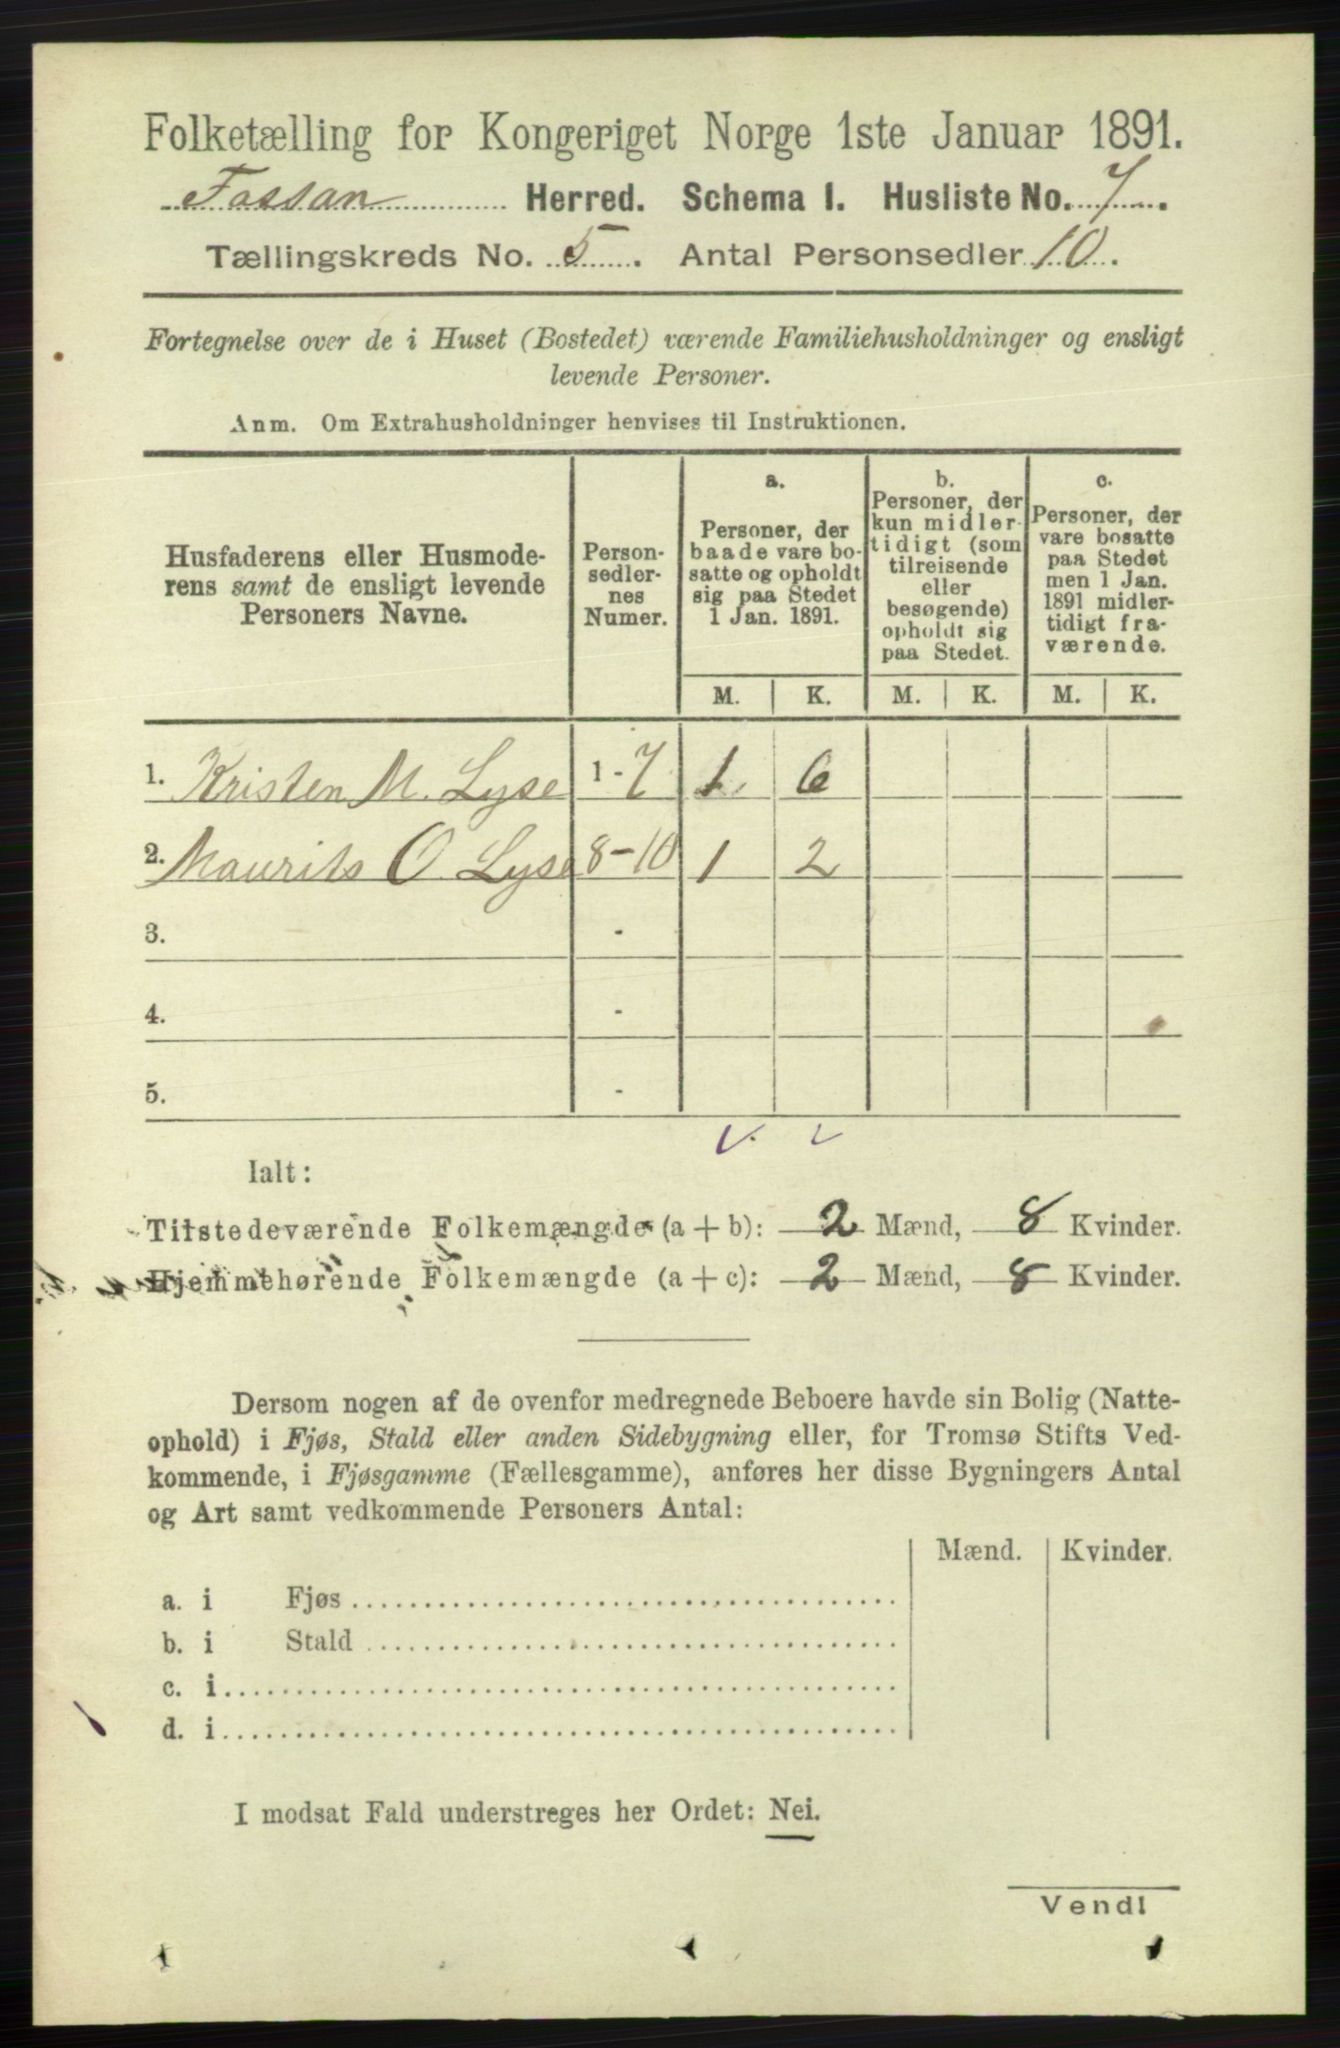 Folketælling for Kongeriget Norge 1ste Januar 1891.
Fossan Herred. Schema I. Husliste No. 7.
Tællingskreds No. 5. Antal Personsedler 10.
Fortegnelse over de i Huset (Bostedet) værende Familiehusholdninger og ensligt
levende Personer.
Anm. Om Extrahusholdninger henvises til Instruktionen.
Husfaderens eller Husmode-
rens samt de ensligt levende
Personers Navne.
Person-
sedler-
nes
Numer.
a.
Personer, der
baade vare bo-
satte og opholdt
sig paa Stedet
1 Jan. 1891.
b.
Personer, der
kun midler-
tidigt (som
tilreisende
eller
besøgende)
opholdt sig
paa Stedet.
c.
Personer, der
vare bosatte
paa Stedet
men 1 Jan.
1891 midler-
tidigt fra-
værende.
M. K. M. K. M. K.
1. Kristen M. Lyse 1-7 1 6
2. Maurits O. Lyse 8-10 1 2
3. -
4. -
5. -
Ialt:
Tilstedeværende Folkemængde (a + b): 2 Mænd, 8 Kvinder.
Hjemmehørende Folkemængde (a + c): 2 Mænd, 8 Kvinder.
Dersom nogen af de ovenfor medregnede Beboere havde sin Bolig (Natte-
ophold) i Fjøs, Stald eller anden Sidebygning eller, for Tromsø Stifts Ved-
kommende, i Fjøsgamme (Fællesgamme), anføres her disse Bygningers Antal
og Art samt vedkommende Personers Antal:
Mænd. Kvinder.
a. i Fjøs
b. i Stald
c. i
d. i
I modsat Fald understreges her Ordet: Nei.
Vend!